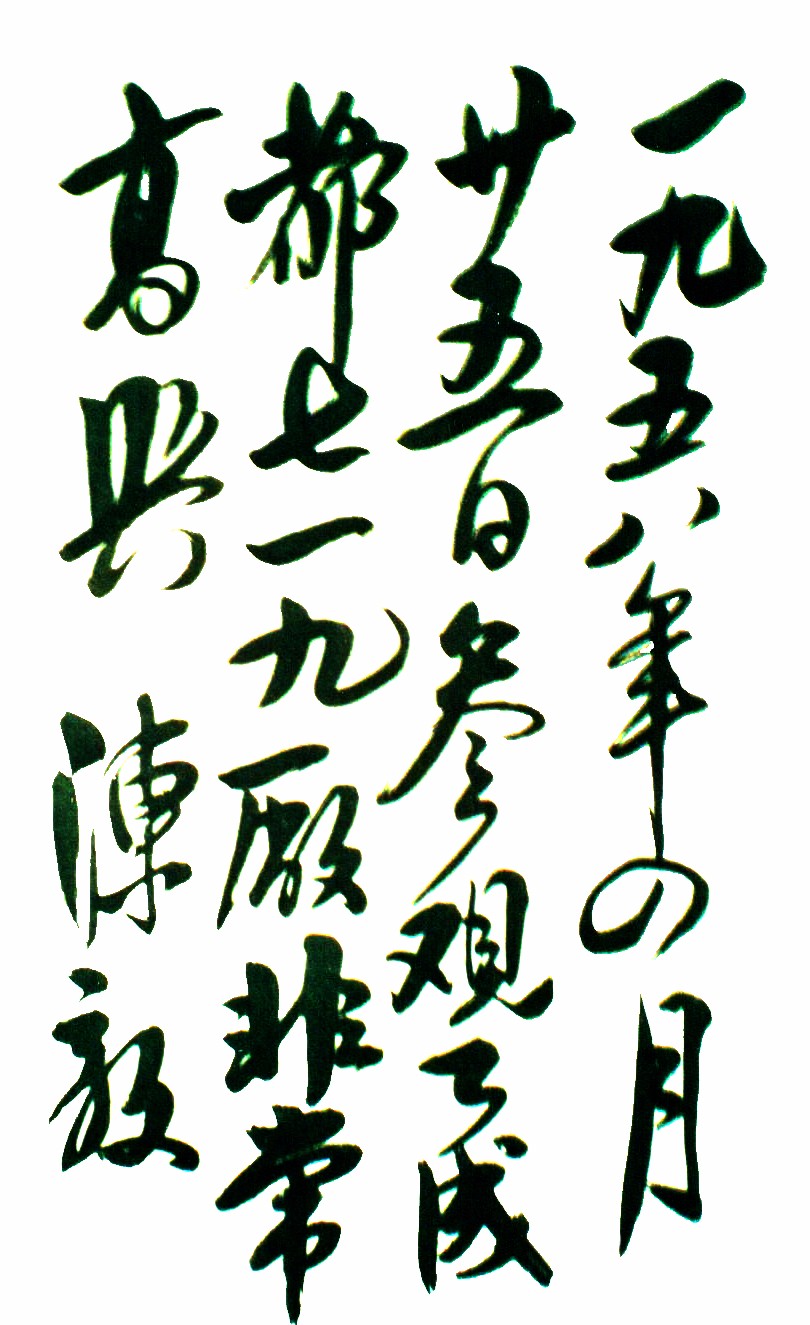 一九五八年四月
廿五日参观了成
都七一九廠非常
高兴 陳毅